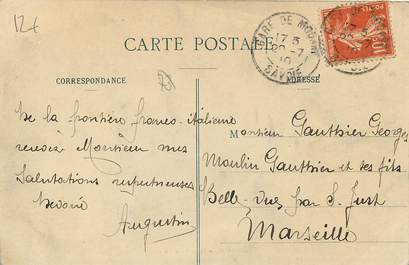 12€
CARTE POSTALE
GARE DE MODANE
17 5
20 - 7
10
SAVOIE
POSTES
10
CORRESPONDANCE
ADRESSE
De la frontière franco-italienne
recevez Monsieur mes
salutations respectueuses
Augustin
Monsieur Gauthier Georges
Moulin Gauthier et ses fils
Belle-Vue par S. Just
Marseille